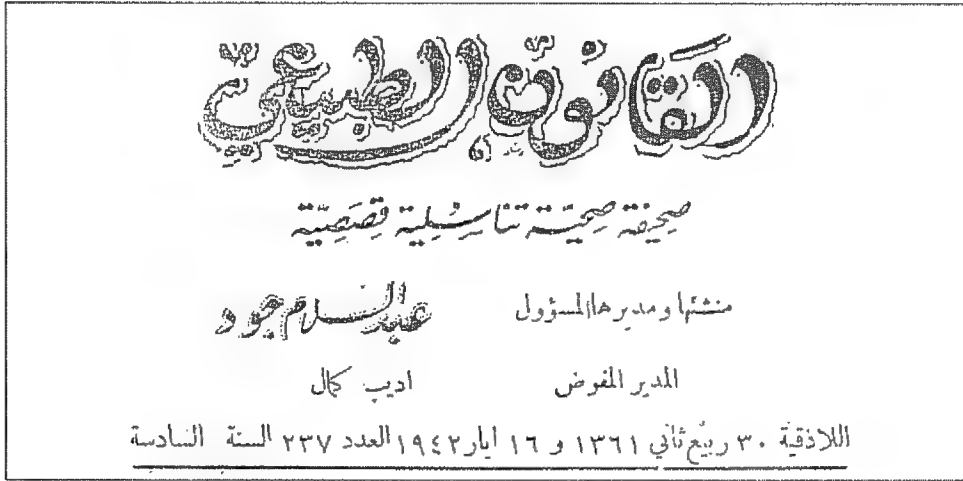 القانون الطبيعي
صحيفة صحيّة تناسُلية قصَصِيّة
منشئها ومديرها المسؤول عبد السلام جود
المدير المفوض اديب كمال
اللاذقية ٣٠ ربيع ثاني ١٣٦١ و ١٦ ايار ١٩٤٢ العدد ٢٣٧ السنة السادسة